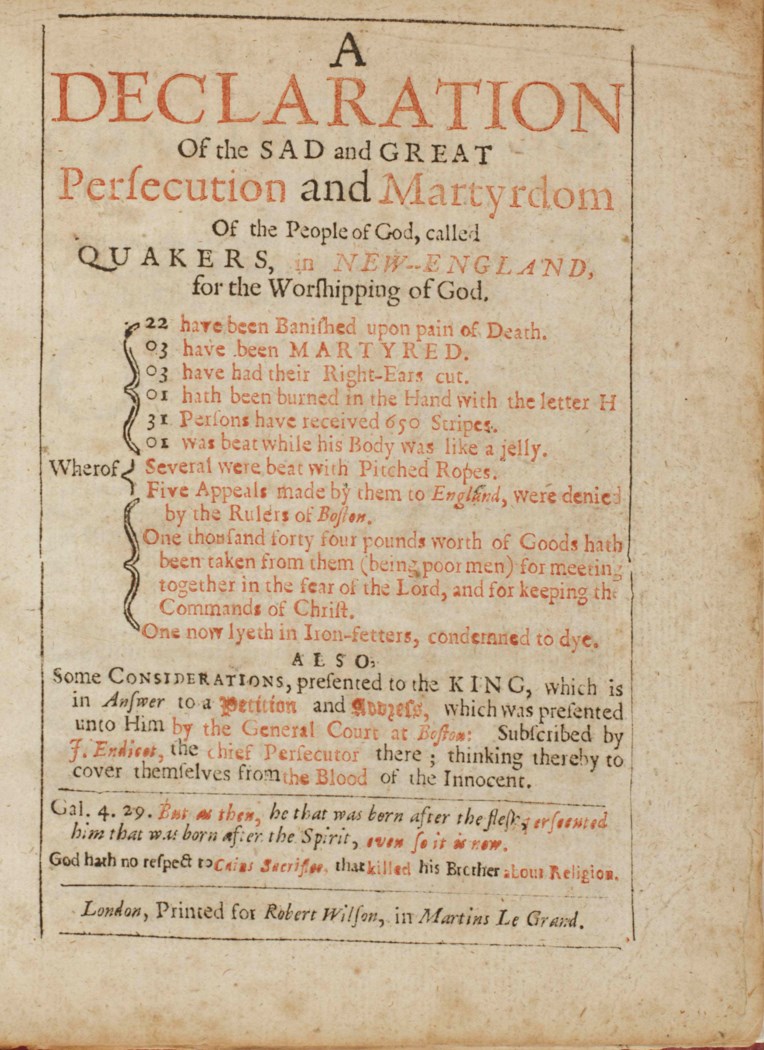 A
DECLARATION
Of the SAD and GREAT
Perſecution and Martyrdom
Of the People of God, called
QUAKERS, in NEW--ENGLAND,
for the Worſhipping of God.
22 have been Baniſhed upon pain of Death.
03 have been MARTYRED.
03 have had their Right-Ears cut.
01 hath been burned in the Hand with the letter H
31 Perſons have received 650 Stripes.
01 was beat while his Body was like a jelly.
Wherof Several were beat with Pitched Ropes.
Five Appeals made by them to England, were denied
by the Rulers of Boſton.
One thouſand forty four pounds worth of Goods hath
been taken from them (being poor men) for meeting
together in the fear of the Lord, and for keeping the
Commands of Chriſt.
One now lyeth in Iron-fetters, condemned to dye.
ALSO,
Some CONSIDERATIONS, preſented to the KING, which is
in Anſwer to a Petition and Addreſs, which was preſented
unto Him by the General Court at Boſton: Subſcribed by
J. Endicot, the chief Perſecutor there; thinking thereby to
cover themſelves from the Blood of the Innocent.
Gal. 4. 29. But as then, he that was born after the fleſh, perſecuted
him that was born after the Spirit, even ſo it is now.
God hath no reſpect to Cains Sacrifice, that killed his Brother about Religion.
London, Printed for Robert Wilſon, in Martins Le Grand.